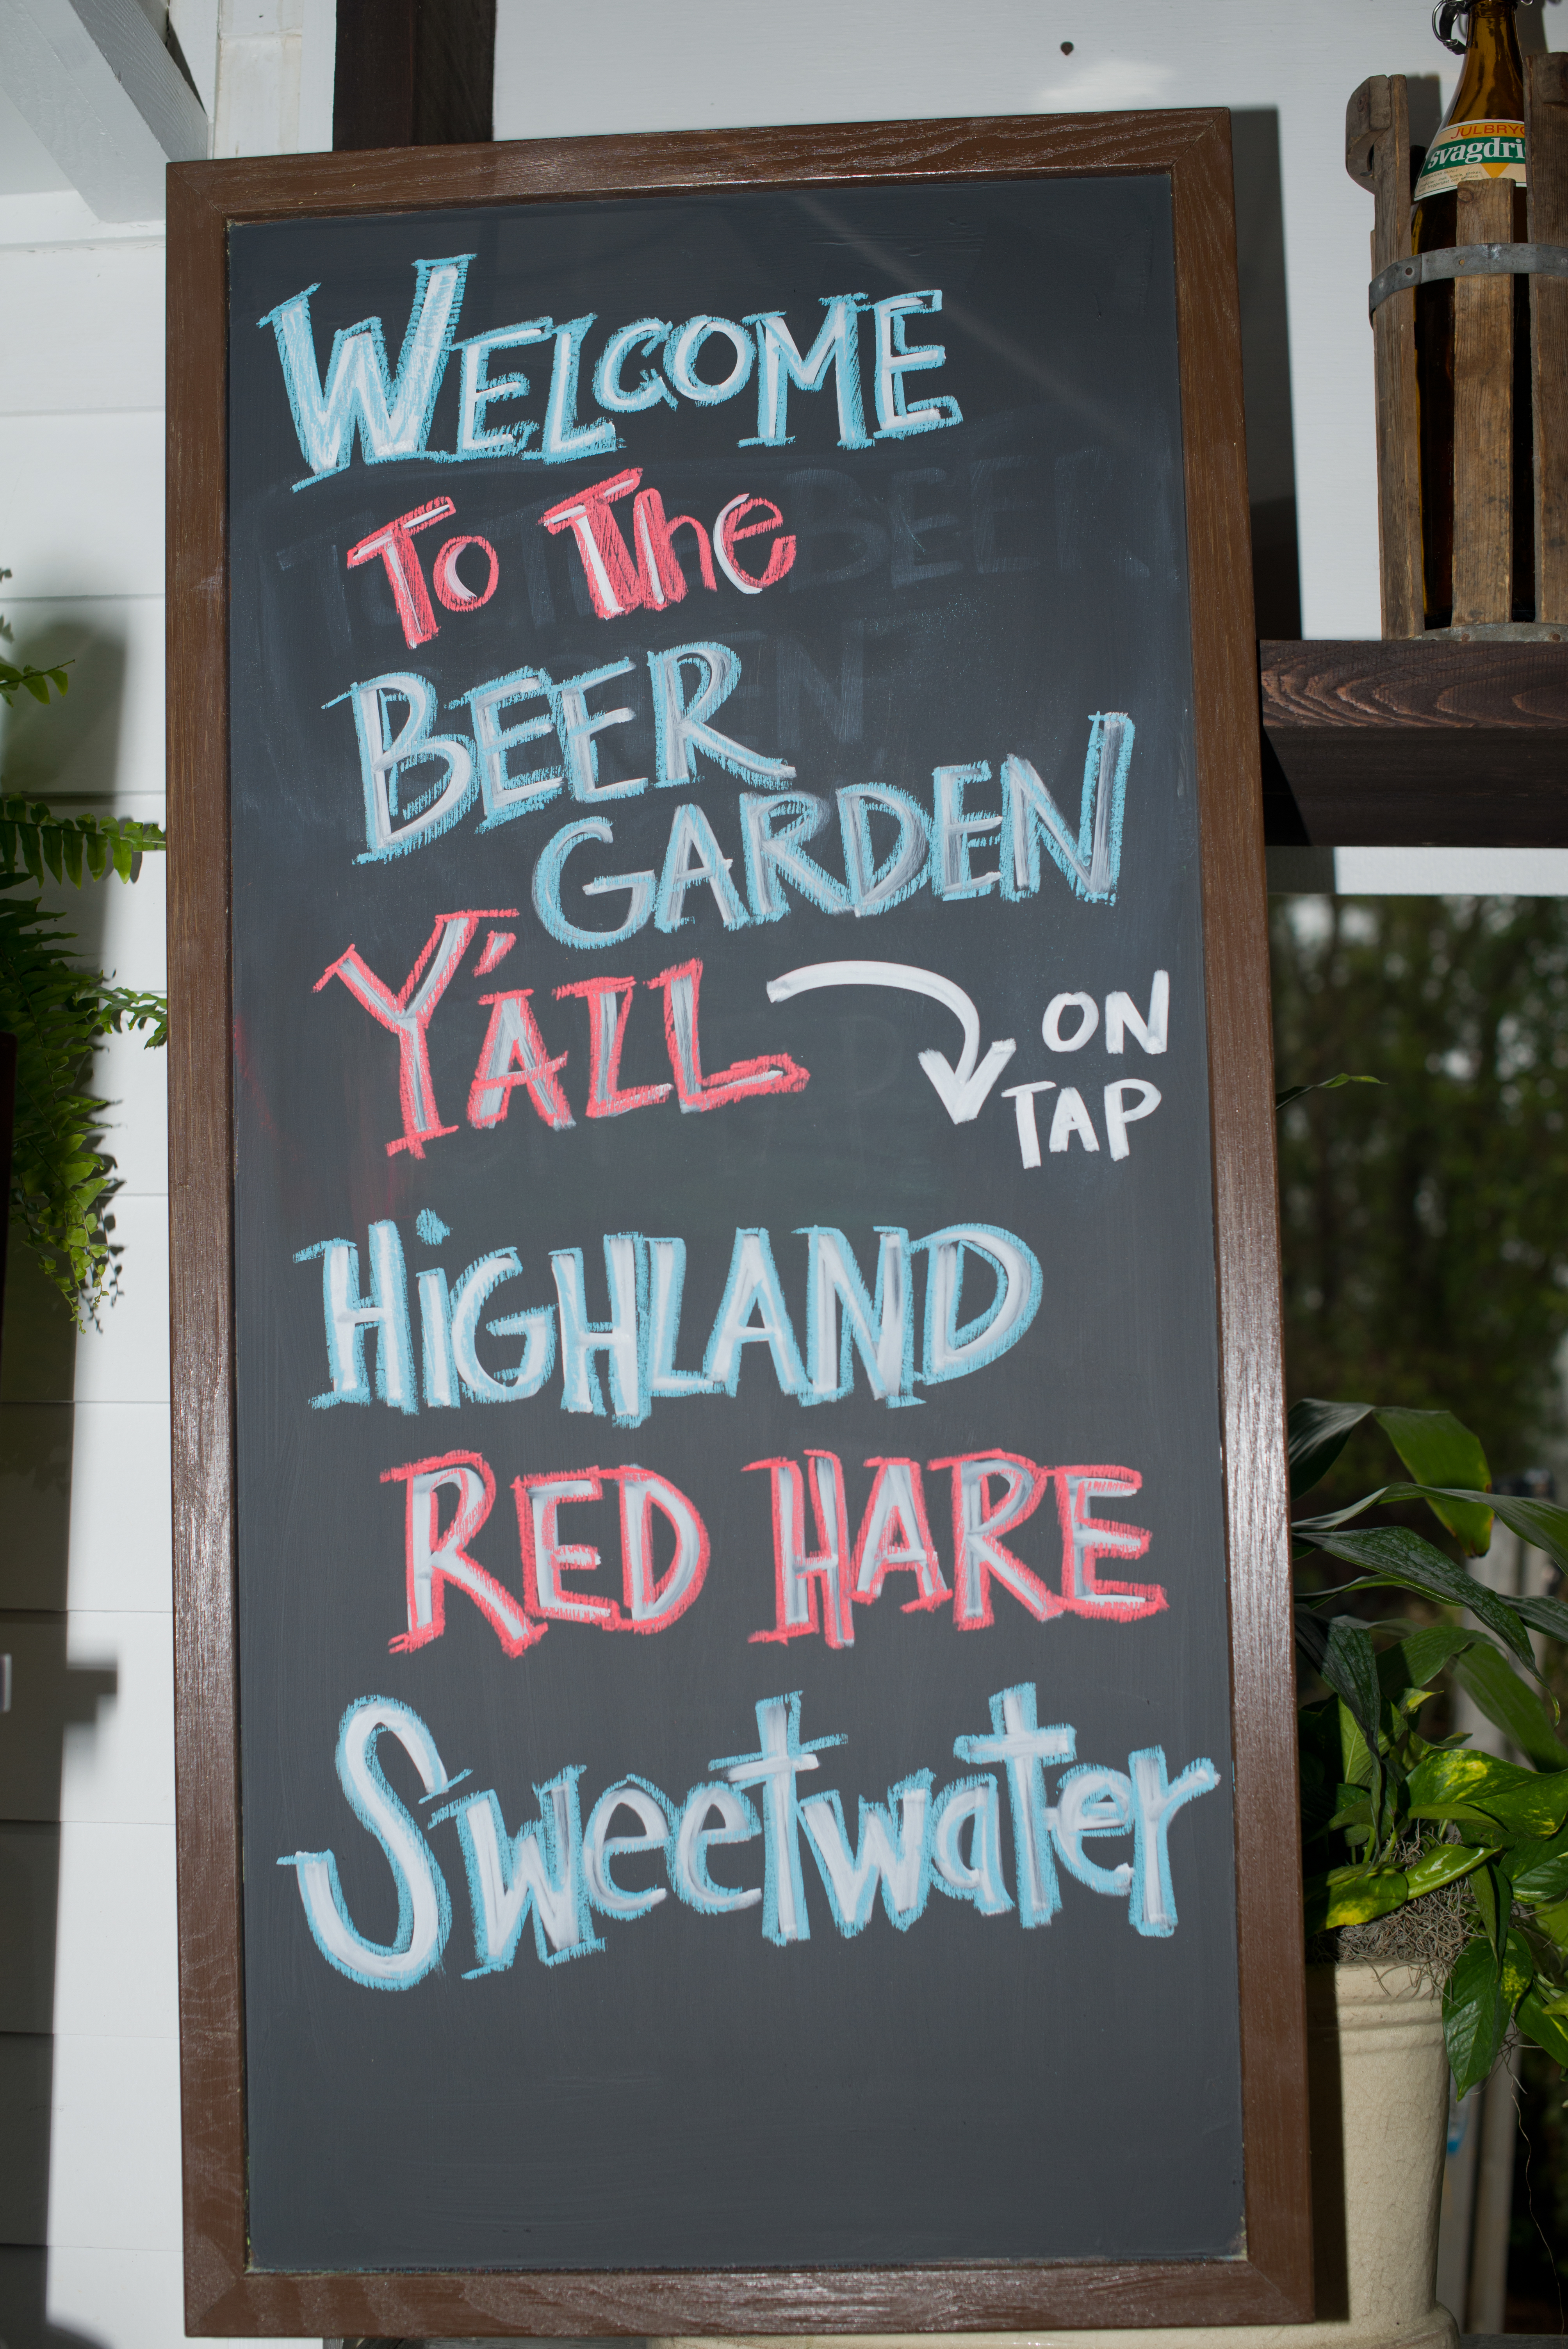 WELCOME
To The
BEER
GARDEN
Y'ALL
ON
TAP
HiGHLAND
RED HARE
Sweetwater
JULBRYG
svagdri